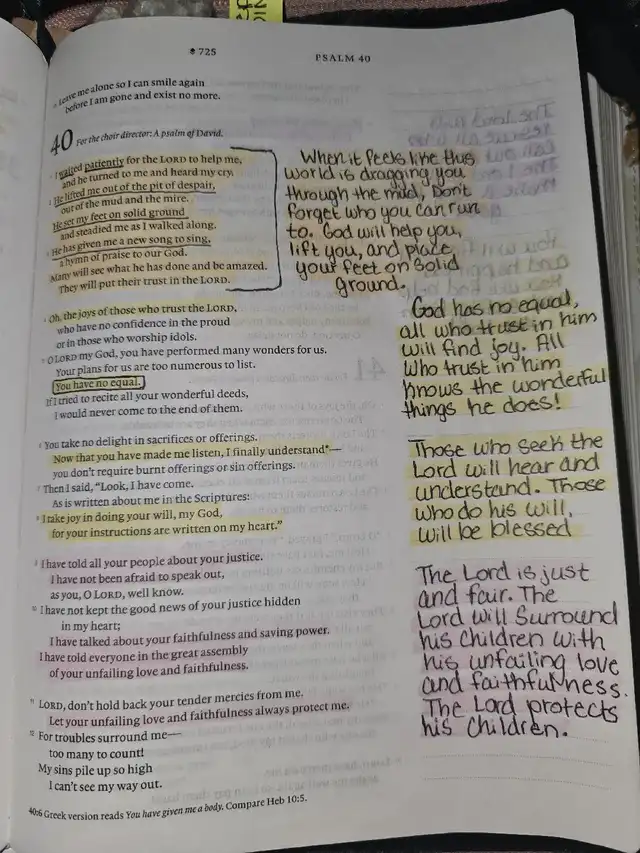 725
PSALM 40
Leave me alone so I can smile again
before I am gone and exist no more.
40 For the choir director: A psalm of David.
1 I waited patiently for the LORD to help me,
and he turned to me and heard my cry.
2 He lifted me out of the pit of despair,
out of the mud and the mire.
He set my feet on solid ground
and steadied me as I walked along.
3 He has given me a new song to sing,
a hymn of praise to our God.
Many will see what he has done and be amazed.
They will put their trust in the LORD.
4 Oh, the joys of those who trust the LORD,
who have no confidence in the proud
or in those who worship idols.
5 O LORD my God, you have performed many wonders for us.
Your plans for us are too numerous to list.
You have no equal.
If I tried to recite all your wonderful deeds,
I would never come to the end of them.
6 You take no delight in sacrifices or offerings.
Now that you have made me listen, I finally understand*—
you don't require burnt offerings or sin offerings.
7 Then I said, "Look, I have come.
As is written about me in the Scriptures:
8 I take joy in doing your will, my God,
for your instructions are written on my heart."
9 I have told all your people about your justice.
I have not been afraid to speak out,
as you, O LORD, well know.
10 I have not kept the good news of your justice hidden
in my heart;
I have talked about your faithfulness and saving power.
I have told everyone in the great assembly
of your unfailing love and faithfulness.
11 LORD, don't hold back your tender mercies from me.
Let your unfailing love and faithfulness always protect me.
12 For troubles surround me—
too many to count!
My sins pile up so high
I can't see my way out.
40:6 Greek version reads You have given me a body. Compare Heb 10:5.
When it feels like this
world is dragging you
through the mud, Don't
forget who you can run
to. God will help you,
lift you, and place
your feet on solid
ground.
God has no equal,
all who trust in him
will find joy. All
who trust in him
knows the wonderful
things he does!
Those who seek the
Lord will hear and
understand. Those
who do his will,
will be blessed
The Lord is just
and fair. The
Lord will surround
his children with
his unfailing love
and faithfulness.
The Lord protects
his children.